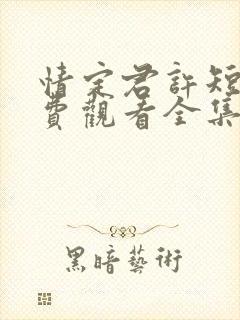 情定君許短
費觀看全集
黑暗藝術